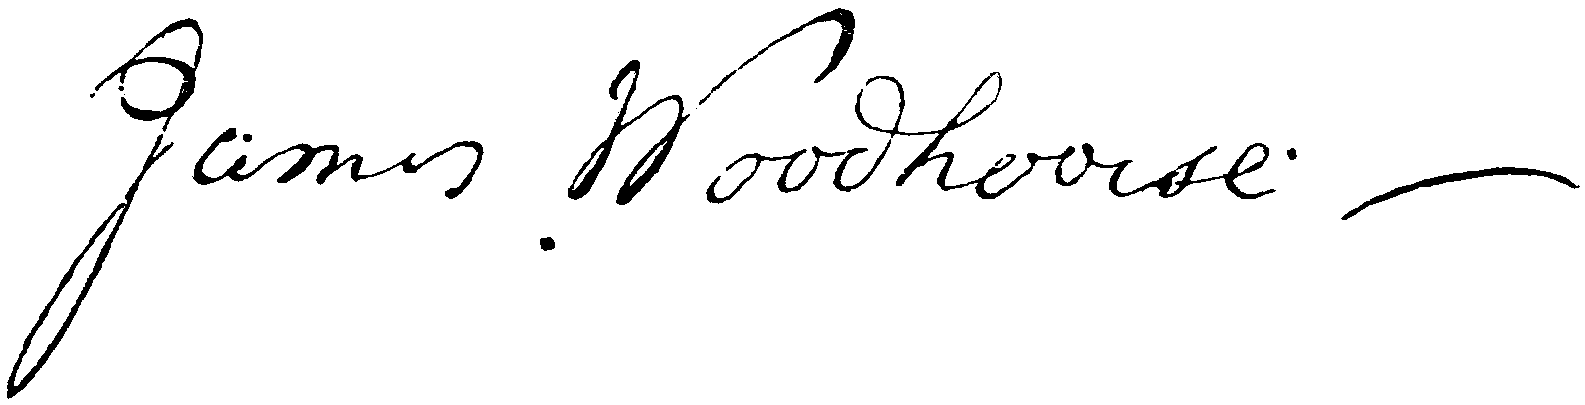 James Woodhouse